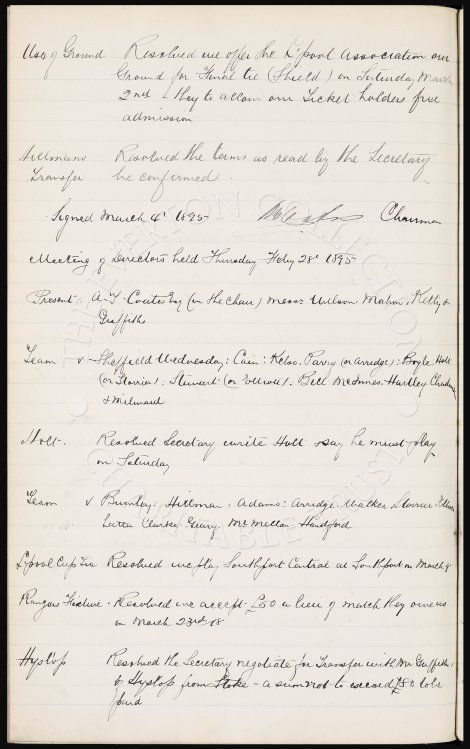 Use of Ground Resolved we offer the L'pool Association our
Ground for Final tie (Shield) on Saturday March
2nd - they to allow our Ticket holders free
admission
Hillmans Resolved the terms as read by the Secretary
Transfer be confirmed.
Signed March 4th 1895 Chairman
Meeting of Directors held Thursday Feby 28th 1895
Present A.T. Coates Esq (in the chair) Messrs Wilson Mahon, Kelly &
Griffiths
Team v Sheffield Wednesday: Cain: Kelso, Parry (or Arridge): Boyle Holt
(or Storrier): Stewart (or Elliott): Bell McInnes Hartley Chadwick
& Milward
Holt. Resolved Secretary write Holt & say he must play
on Saturday
Team v Burnley: Hillman: Adams: Arridge Walker Storrier Elliott
Latta Clarke Geary McMillan Handford
L'pool Cup Tie Resolved we play Southport Central at Southport on March 9
Rangers Fixture. Resolved we accept £50 in lieu of match they owe us
on March 23rd
Hyslop Resolved the Secretary negotiate for Transfer with Mr Griffiths
of Hyslop from Stoke - a sum not to exceed £80 to be
paid
THE EVERTON COLLECTION
CHARITABLE TRUST